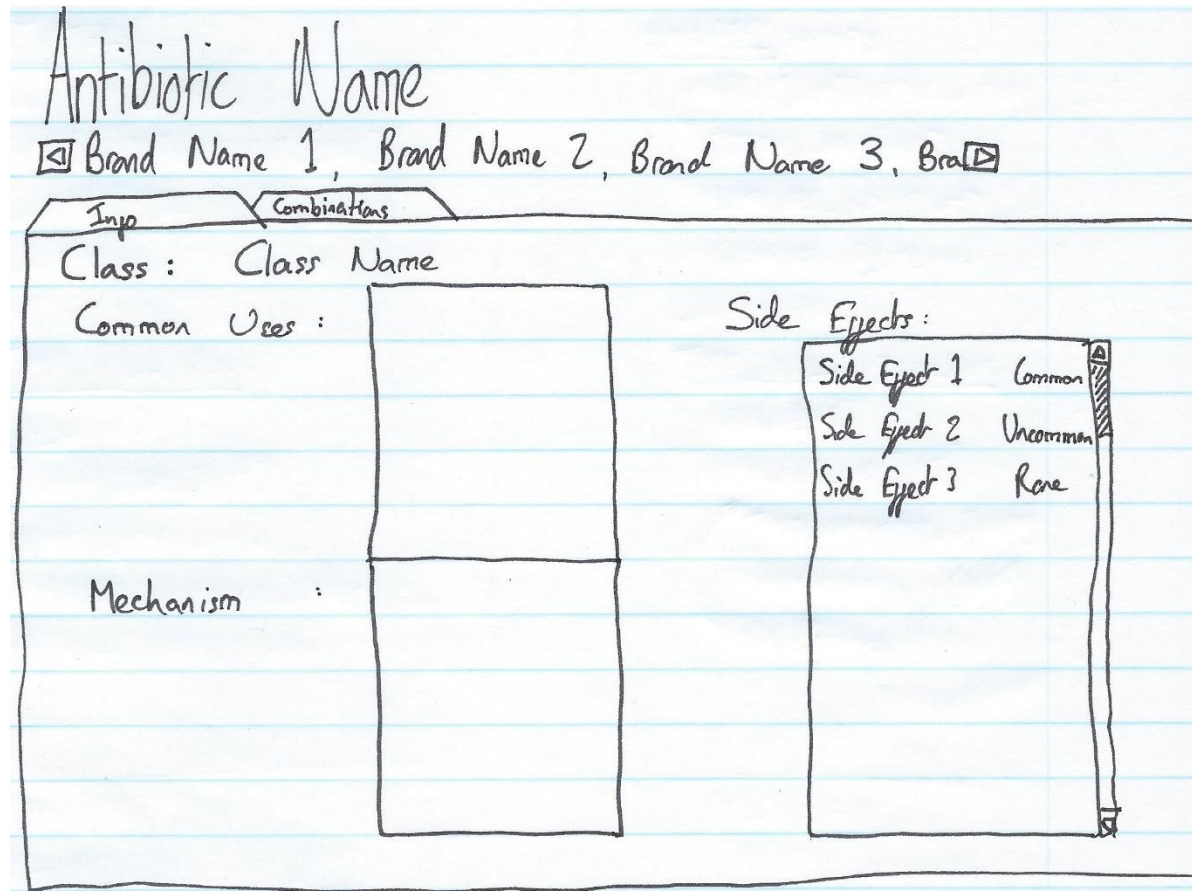 Antibiotic Name
Brand Name 1, Brand Name 2, Brand Name 3, Bra
Info Combinations
Class: Class Name
Common Uses:
Side Effects:
Side Effect 1 Common
Side Effect 2 Uncommon
Side Effect 3 Rare
Mechanism :